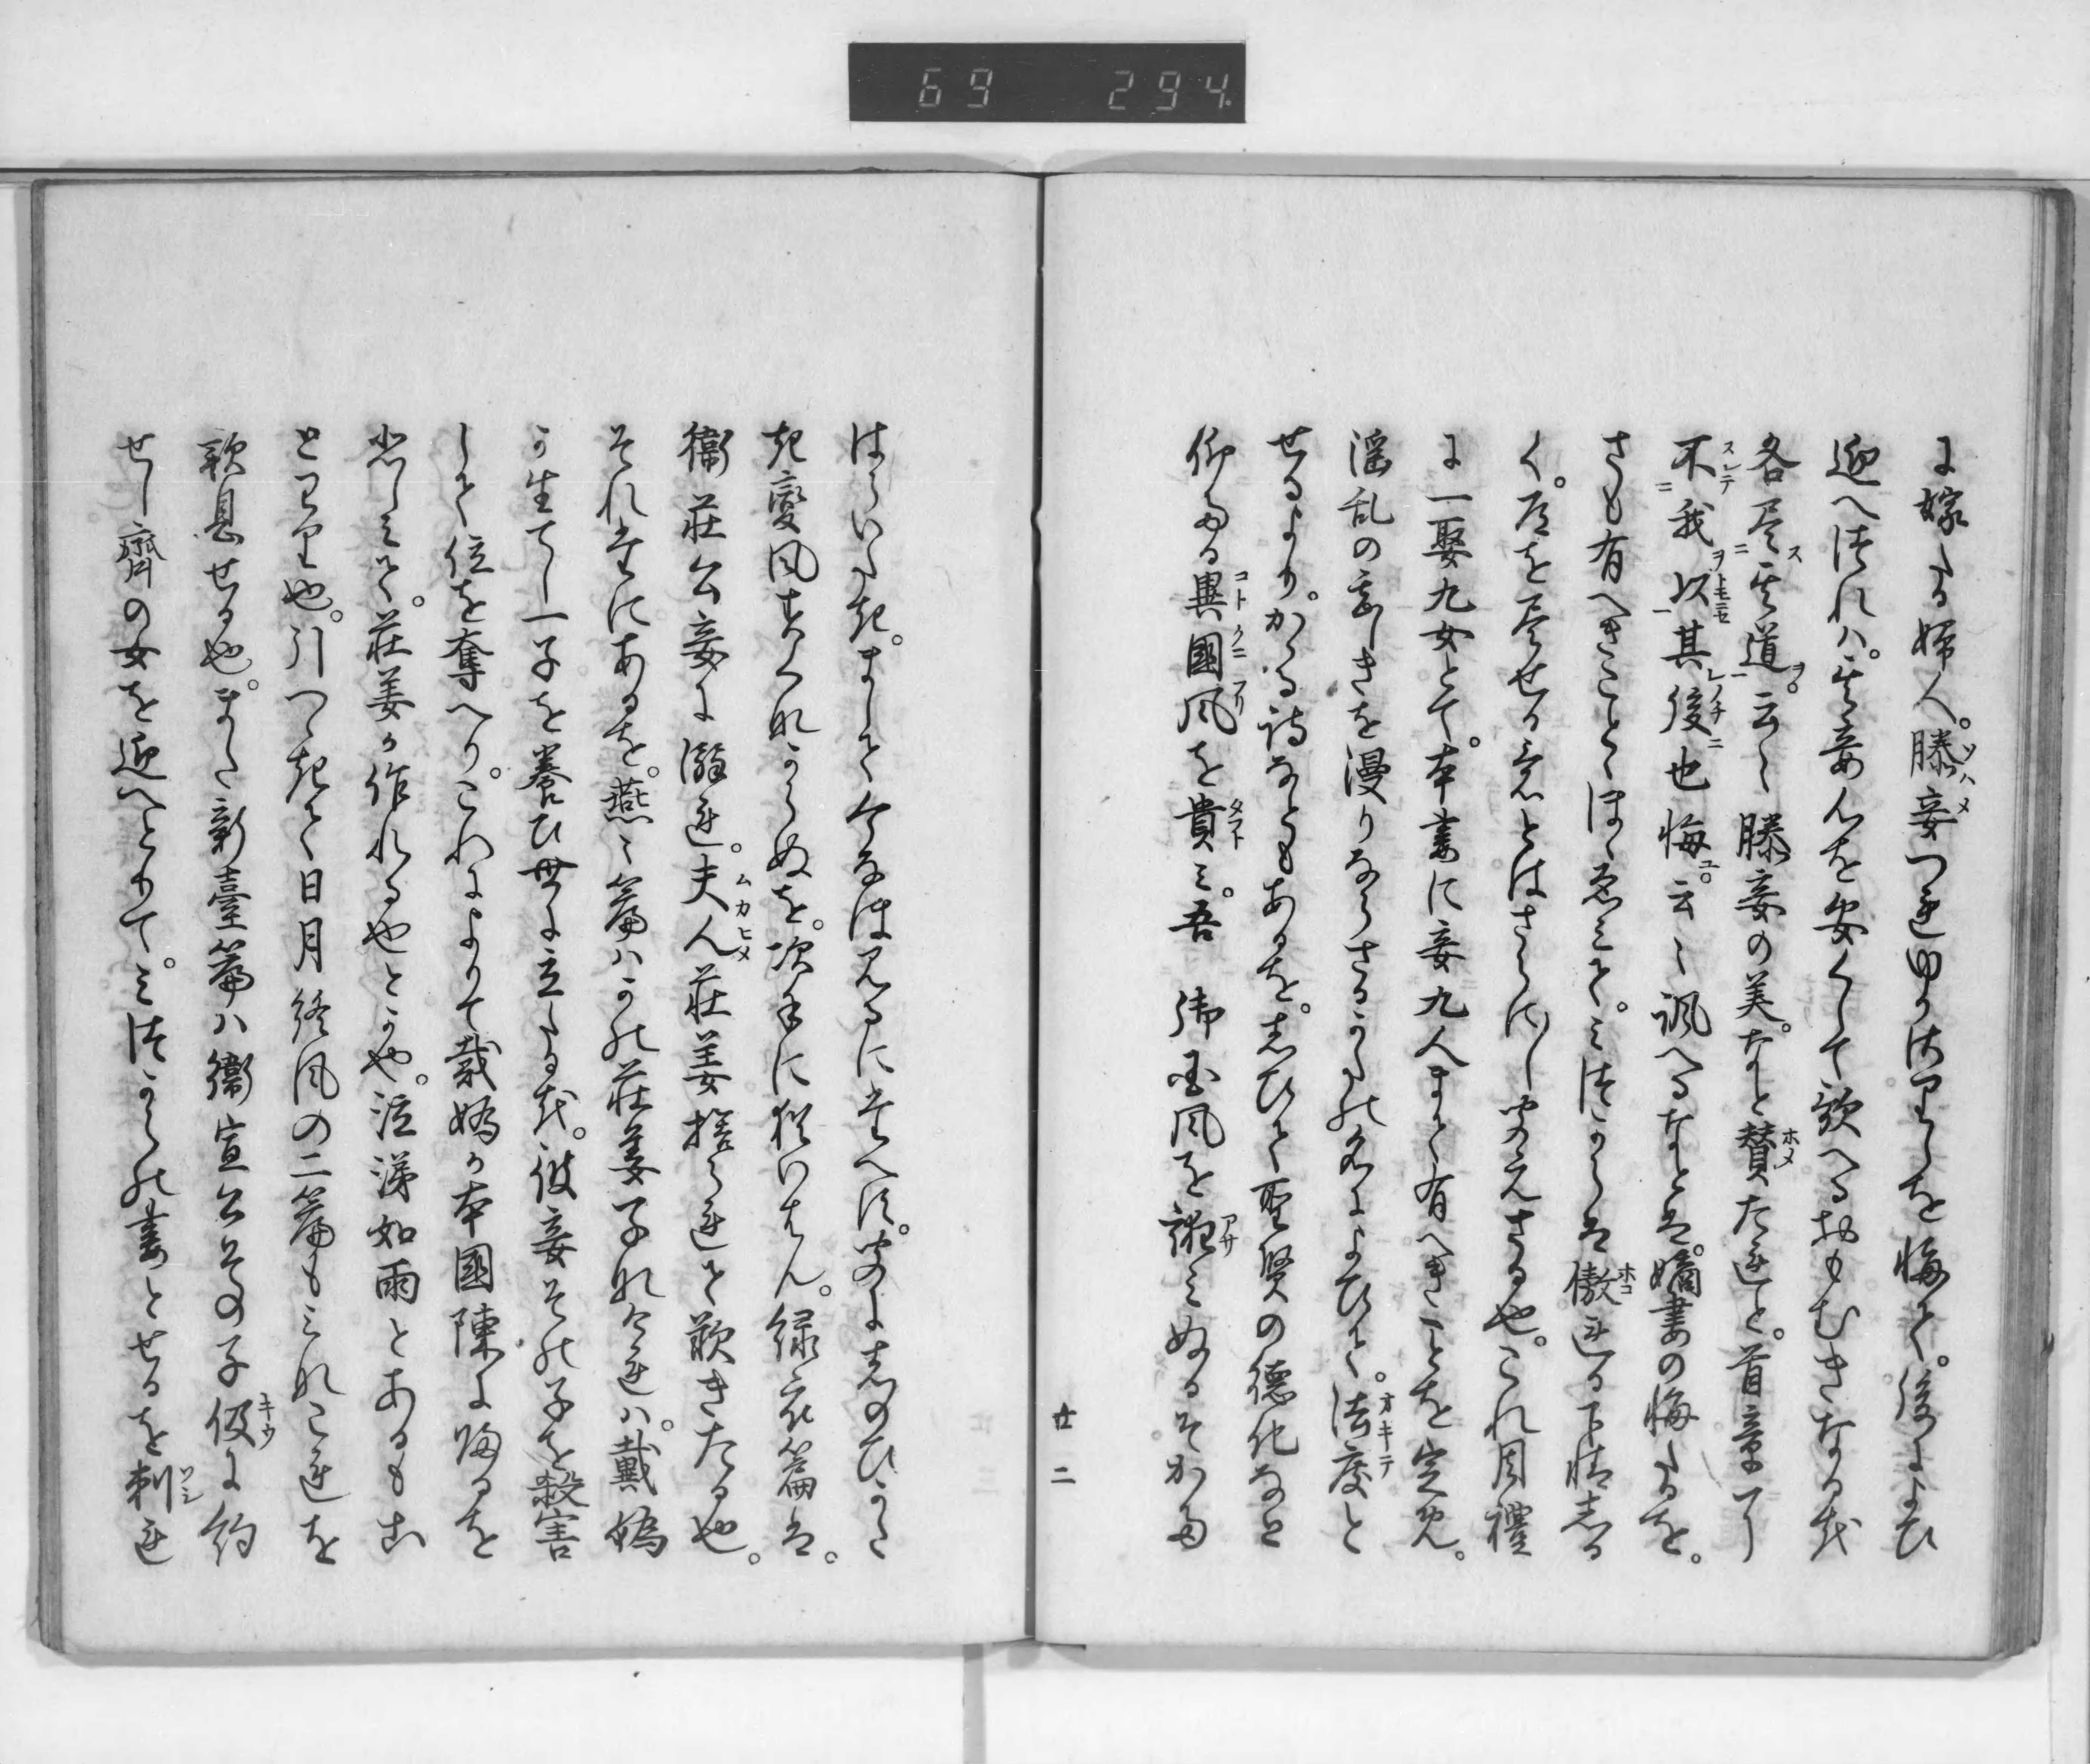 69 294.
に嫁たる婦人。媵妾つれゆかさりしを悔て。後によひ
迎へ給れハ。其妾心を安くして歌へるおもむきなるを
各尽其道云〻媵妾の美。なと賛たれと。首章に
不我以其後也悔云〻諷へるなとは。嫡妻の悔たるを。
さも有へきことゝほゝゑミて。ミつからは傲れる下情しる
く。道を尽せる意とはさらにし聞えさる也。これ周禮
に一娶九女とて。本妻に妾九人まて有へきことを定め。
淫乱の言しきを漫りならさるかたの名によひて。法度と
せるより。かゝる詩なともあるを。しひて聖賢の徳化なと
仰ける異國風を貴ミ。吾 御国風を譏ミぬるそかた
廿二
はらいたき。まして今なほ見るにたへす。聞にしのひかた
き変風すくなからぬを。次〻に猶いはん。緑衣篇は。
衛荘公妾に溺れ。夫人荘姜捨られて歎きたる也。
それたにあるを。燕〻篇ハかの荘姜子なけれハ。戴嬀
か生てし一子を養ひ世に立たるを。彼妾その子を殺害
して位を奪へり。これによりて戴嬀か本國陳に帰るを
悲しミて。荘姜か作れる也とかや。泣涕如雨とあるもこ
とわり也。引つゝきて日月終風の二篇もミなこれを
歎息せる也。また新臺篇ハ衛宣公その子伋に約
せし齊の女を迎へとりて。ミつからの妻とせるを刺れ